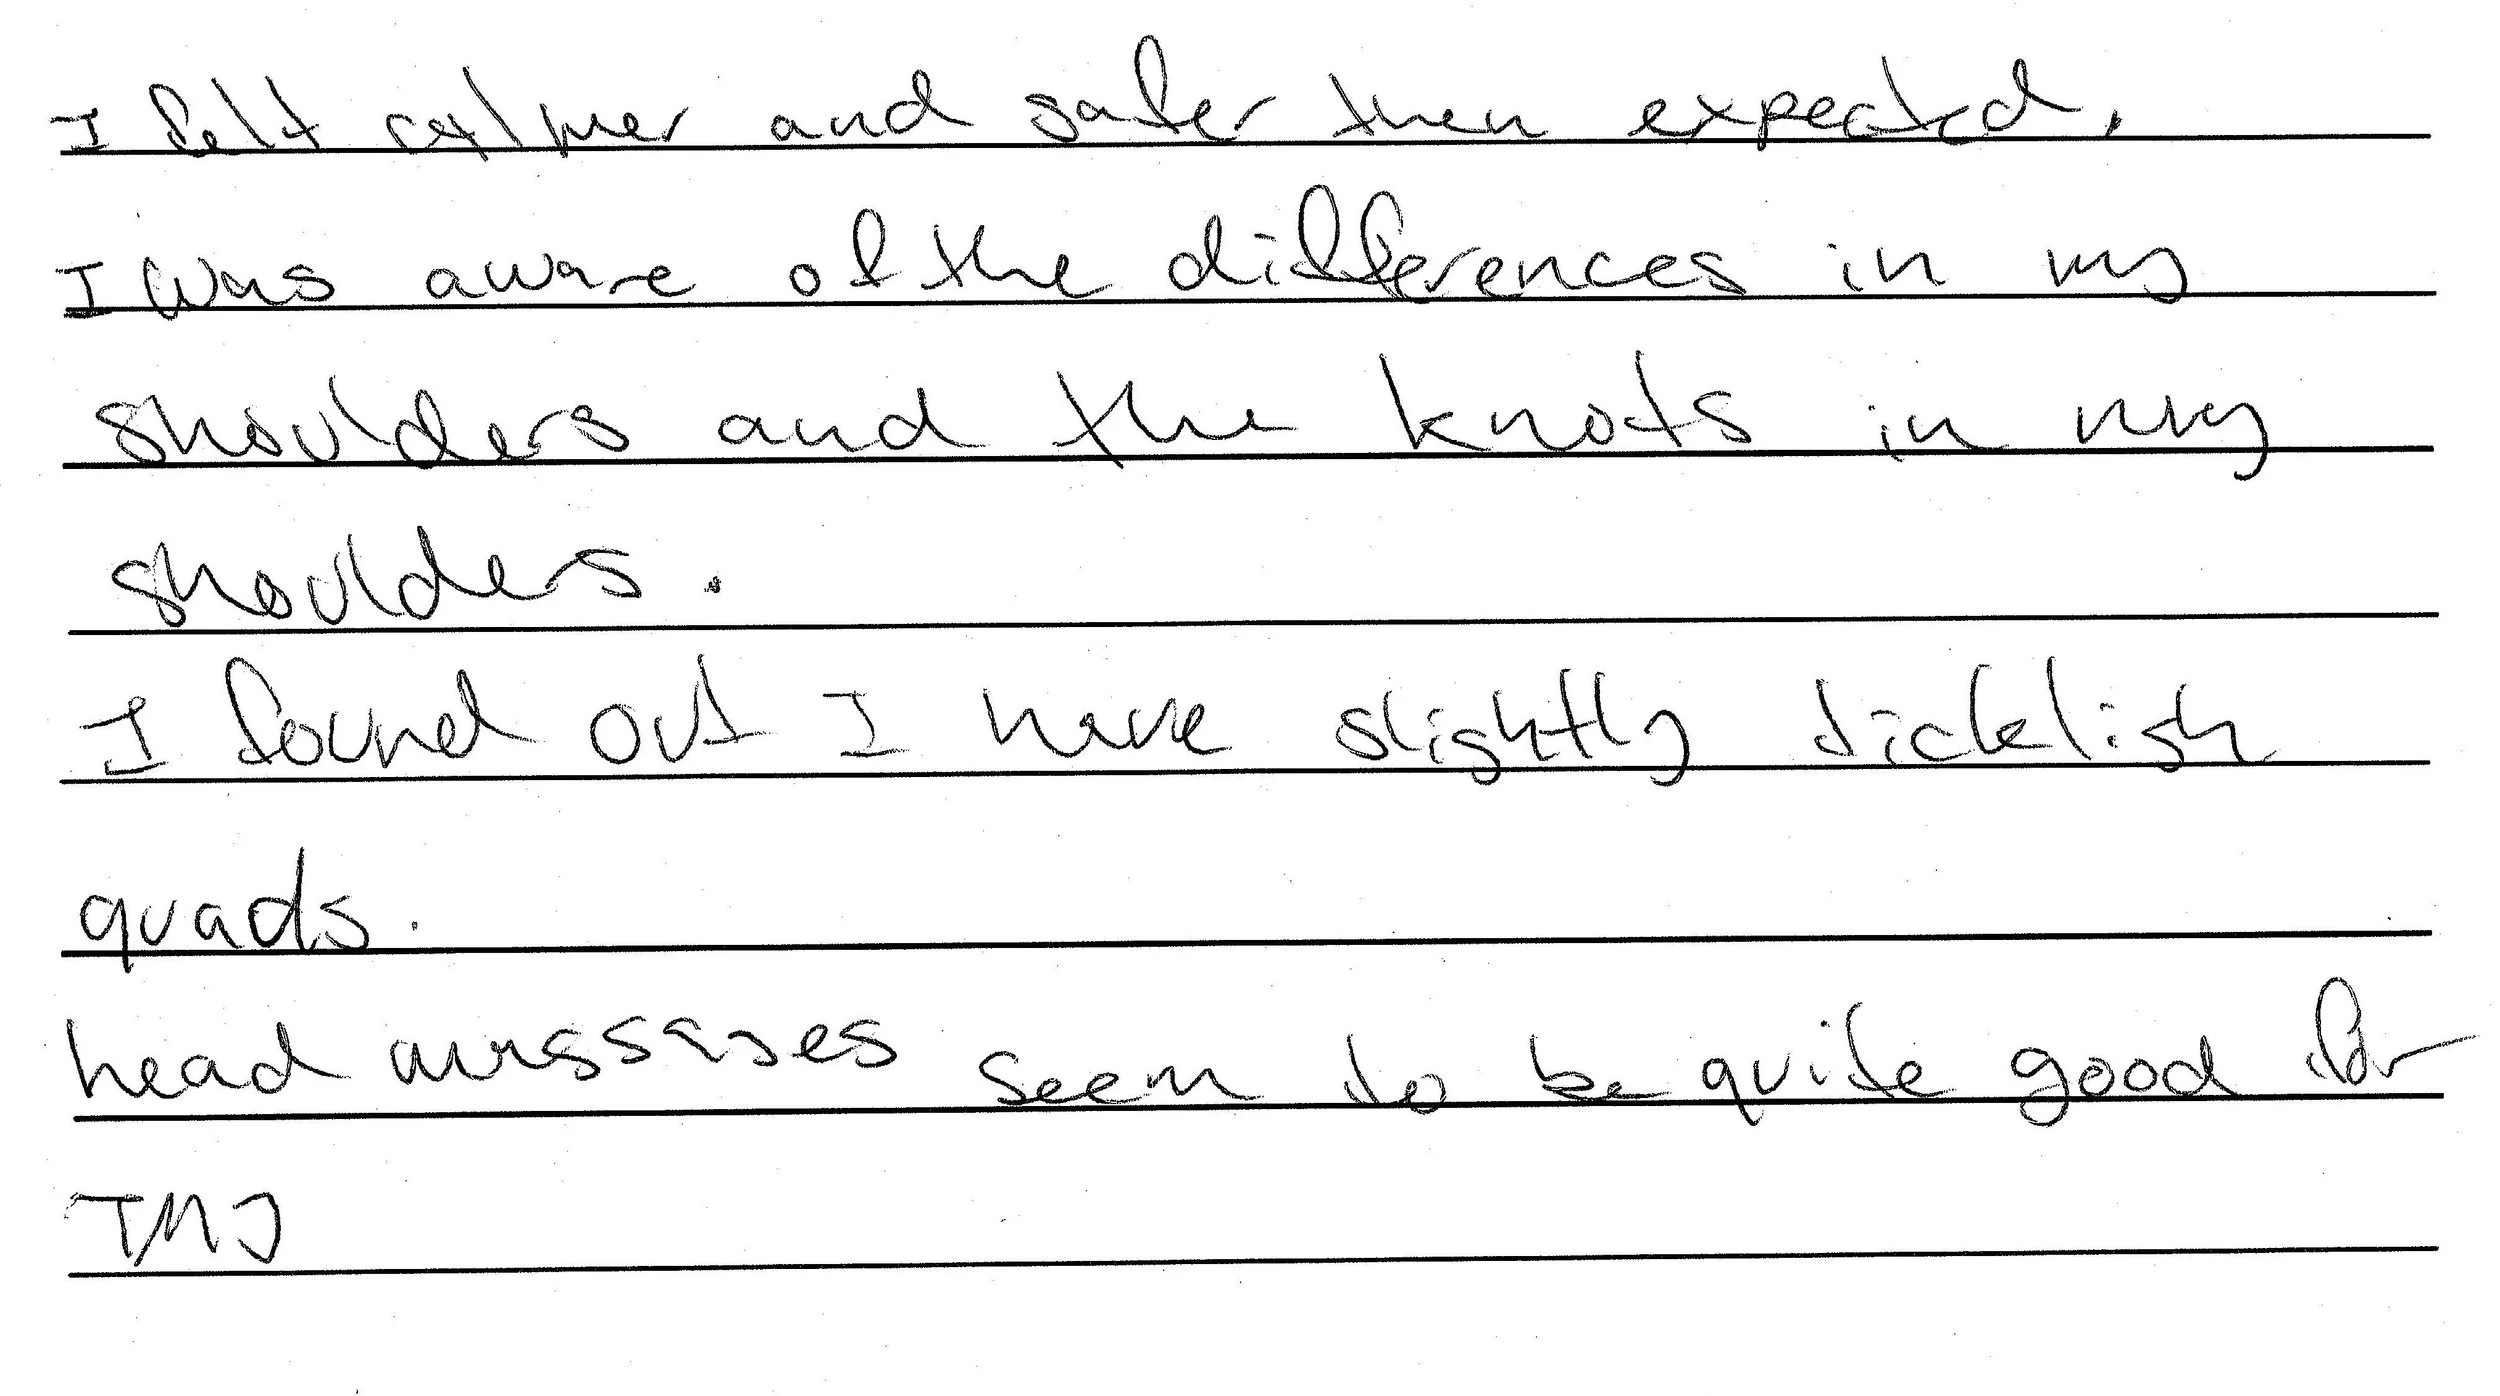 I felt calmer and safer then expected.
I was aware of the differences in my
shoulders and the knots in my
shoulders.
I found out I have slightly ticklish
quads.
head masssages seem to be quite good for
TMJ